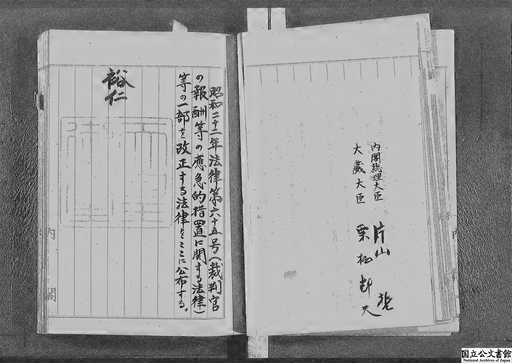 昭和二十二年法律第六十五号(裁判官
の報酬等の應急的措置に関する法律)
等の一部を改正する法律をここに公布する。
裕仁
内閣総理大臣 片山 哲
大蔵大臣 栗栖赳夫
国立公文書館
National Archives of Japan